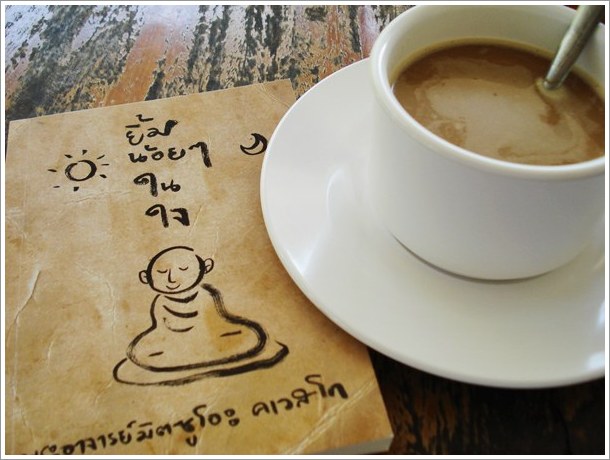 ยิ้ม
น้อยๆ
ใน
ใจ
พระอาจารย์มิตซูโอะ คเวสโก